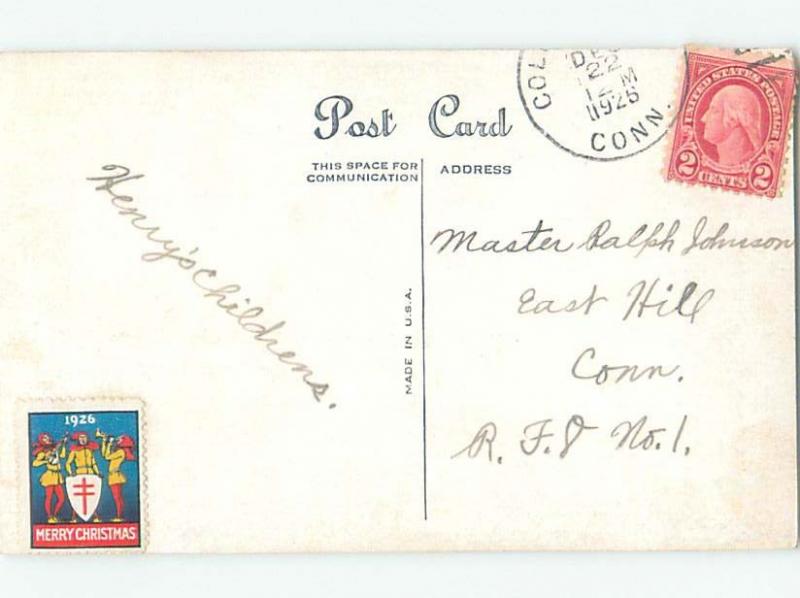 Post Card
THIS SPACE FOR
COMMUNICATION
ADDRESS
MADE IN U.S.A.
Henry's Childrens.
COL
DEC
22
12 M
1926
CONN.
UNITED STATES POSTAGE
2 CENTS 2
Master Ralph Johnson
East Hill
Conn.
R. F. D No. 1.
1926
MERRY CHRISTMAS